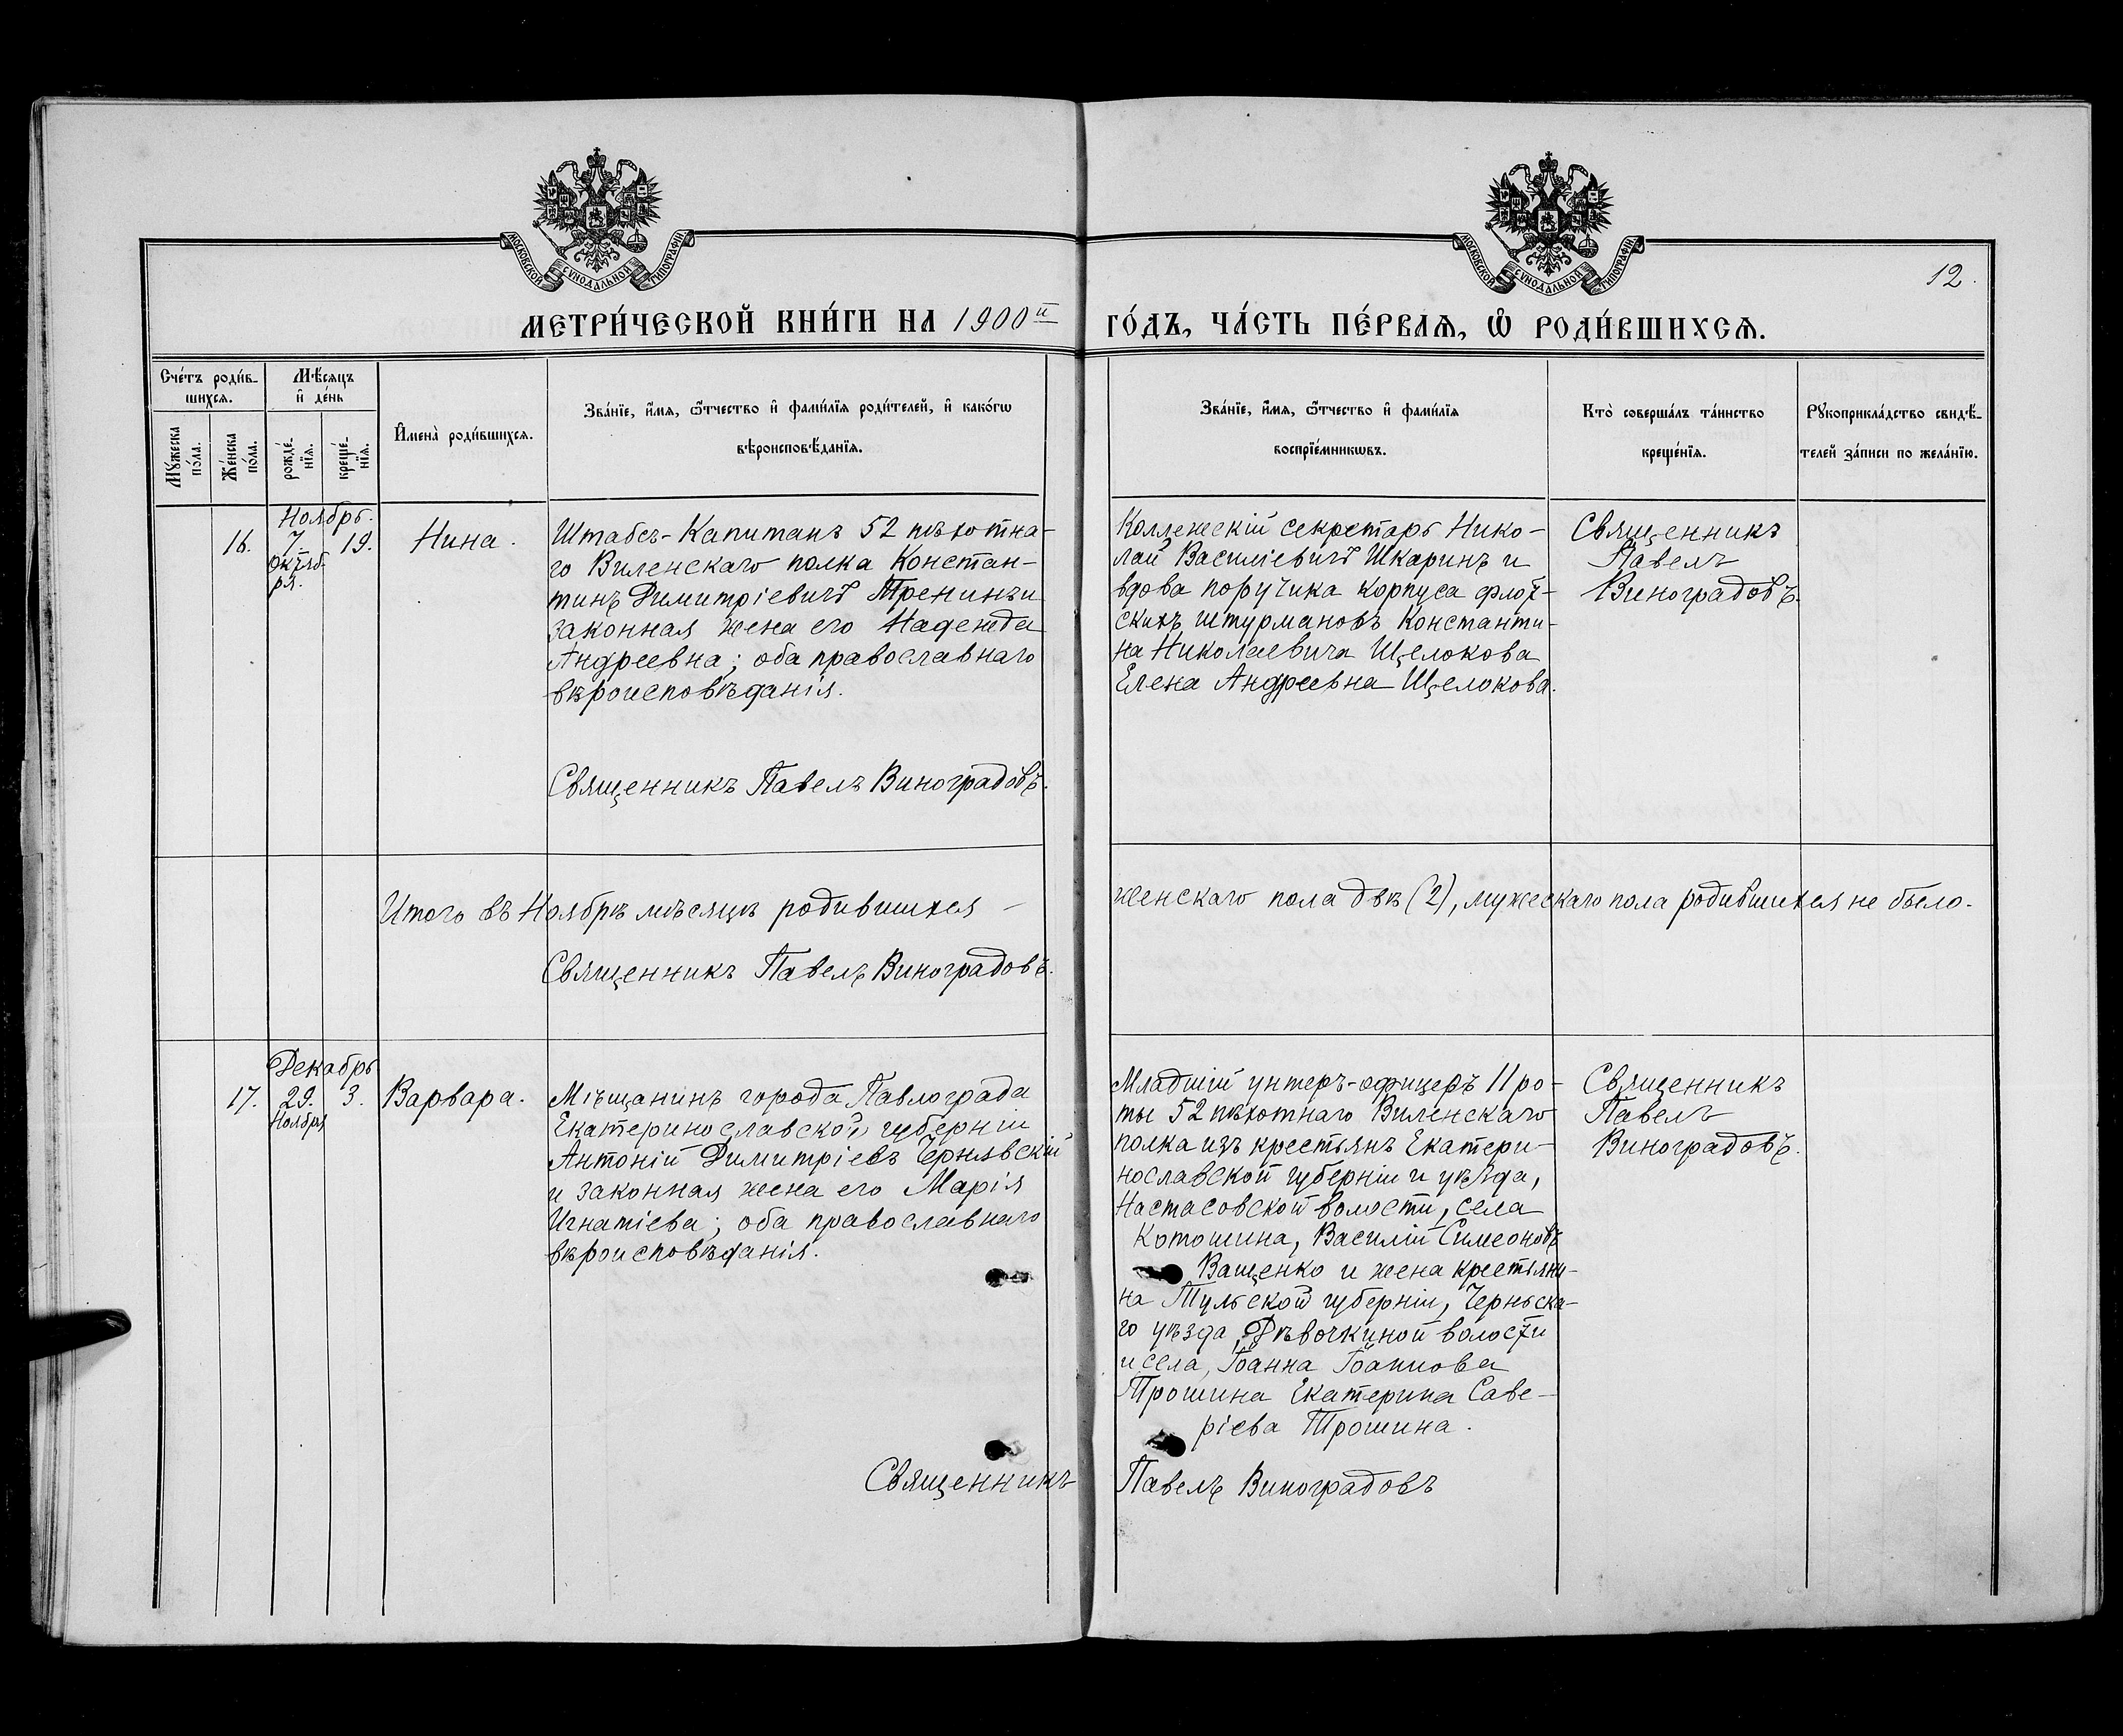 МОСКОВСКОЙ СѴНОДАЛЬНОЙ ТИПОГРАФІИ
МОСКОВСКОЙ СѴНОДАЛЬНОЙ ТИПОГРАФІИ
12.
МЕТРИ́ЧЕСКОЙ КНИ́ГИ НА 1900й
ГО́ДЪ, ЧА́СТЬ ПЕ́РВАѦ, Ѿ РОДИ́ВШИХСѦ.
Сче́тъ роди́в-
шихсѧ.
Мѣ́сѧцъ
и҆ де́нь
Мꙋ́жеска
по́ла.
Же́нска
по́ла.
рожде́-
нїѧ.
креще́-
нїѧ.
И҆мена̀ роди́вшихсѧ.
Зва́нїе, и҆́мѧ, ѻ҆́тчество и҆ фами́лїѧ роди́телей, и҆ како́гѡ
вѣроисповѣ́данїѧ.
Зва́нїе, и҆́мѧ, ѻ҆́тчество и҆ фами́лїѧ
воспрїе́мникѡвъ.
Кто̀ соверша́лъ та́инство
креще́нїѧ.
Рꙋкоприкла́дство свидѣ́-
телей за́писи по жела́нїю.
Ноябрь.
16. 7 19. Нина.
Октяб-
ря.
Штабсъ-Капитанъ 52 пѣхотна-
го Виленскаго полка Констан-
тинъ Димитріевичъ Тренинъ и
законная жена его Надежда
Андреевна; оба православнаго
вѣроисповѣданія.
Священникъ Павелъ Виноградовъ.
Коллежскій секретарь Нико-
лай Василіевичъ Шкаринъ и
вдова поручика корпуса флот-
скихъ штурмановъ Константи-
на Николаевича Щелокова
Елена Андреевна Щелокова.
Священникъ
Павелъ
Виноградовъ.
Итого въ Ноябрѣ мѣсяцѣ родившихся –
женскаго пола двѣ (2), мужескаго пола родившихся не было.
Священникъ Павелъ Виноградовъ.
Декабрь
17. 29. 3. Варвара.
Ноября
Мѣщанинъ города Павлограда
Екатеринославской губерніи
Антоній Димитріевъ Чернявскій
и законная жена его Марія
Игнатіева; оба православнаго
вѣроисповѣданія.
Младшій унтеръ-офицеръ 11 ро-
ты 52 пѣхотнаго Виленскаго
полка изъ крестьянъ Екатери-
нославской губерніи и уѣзда,
Настасовской волости, села
Котошина, Василій Симеоновъ
Ващенко и жена крестьяни-
на Тульской губерніи, Черньска-
го уѣзда, Дѣвочкиной волости
и села, Іоанна Іоаннова
Трошина Екатерина Саве-
ріева Трошина.
Священникъ
Павелъ
Виноградовъ.
Священникъ Павелъ Виноградовъ